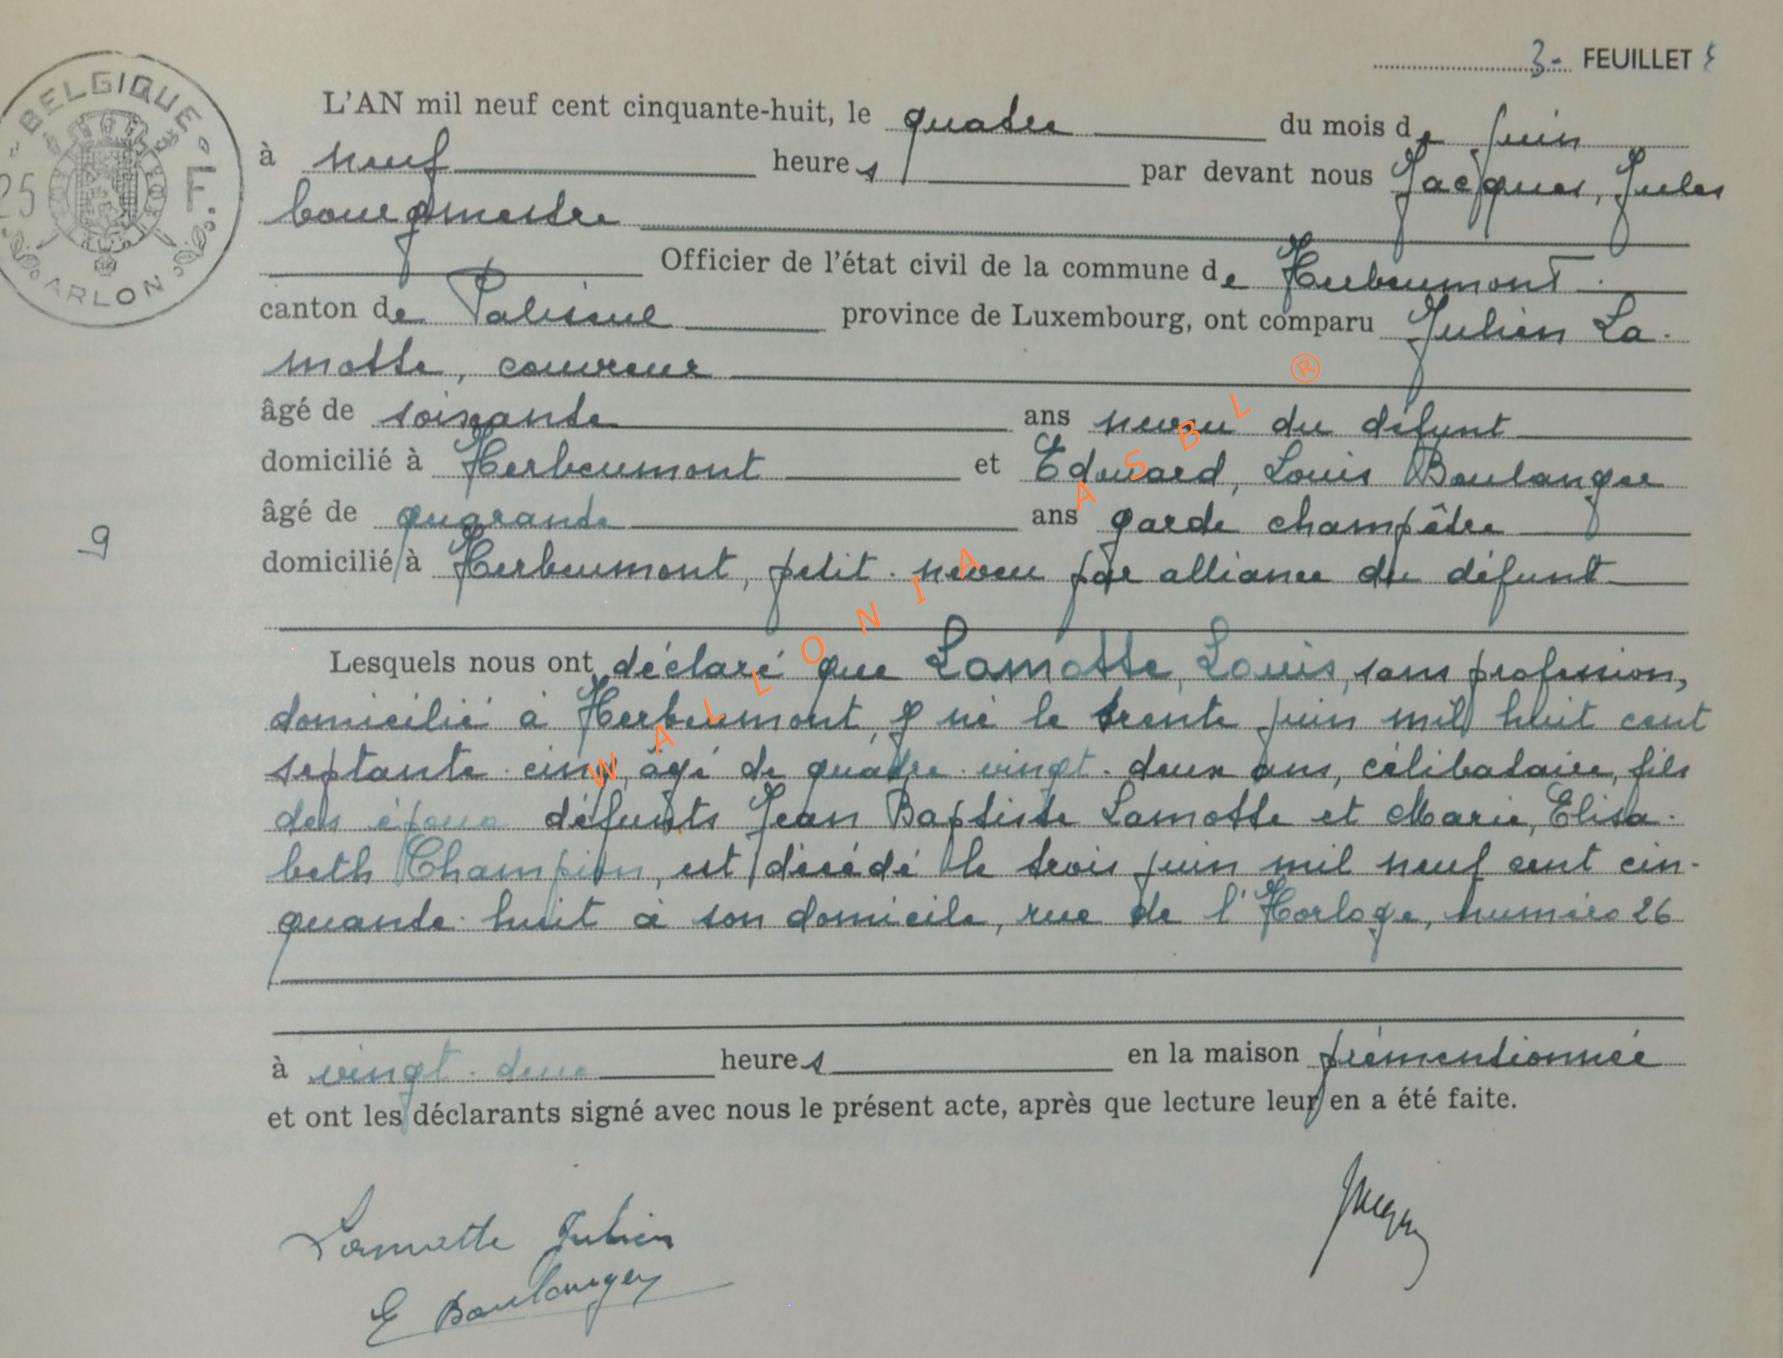 3- FEUILLET
BELGIQUE
25 F.
ARLON
L'AN mil neuf cent cinquante-huit, le quatre du mois de juin
à neuf heures par devant nous Jacques, Jules
bourgmestre
Officier de l'état civil de la commune de Herbeumont
canton de Paliseul province de Luxembourg, ont comparu Julien La-
motte, couvreur
âgé de soixante ans neveu du défunt
domicilié à Herbeumont et Edouard, Louis Boulanger
âgé de quarante ans garde champêtre
9
domicilié à Herbeumont, petit-neveu par alliance du défunt
Lesquels nous ont déclaré que Lamotte, Louis, sans profession,
domicilié à Herbeumont, y né le trente juin mil huit cent
septante-cinq, âgé de quatre-vingt-deux ans, célibataire, fils
des époux défunts Jean Baptiste Lamotte et Marie, Elisa-
beth Champion, est décédé le trois juin mil neuf cent cin-
quante-huit à son domicile, rue de l'Horloge, numéro 26
à vingt-deux heures en la maison prémentionnée
et ont les déclarants signé avec nous le présent acte, après que lecture leur en a été faite.
Lamotte Julien
E Boulanger
WALLONIA ASBL ®